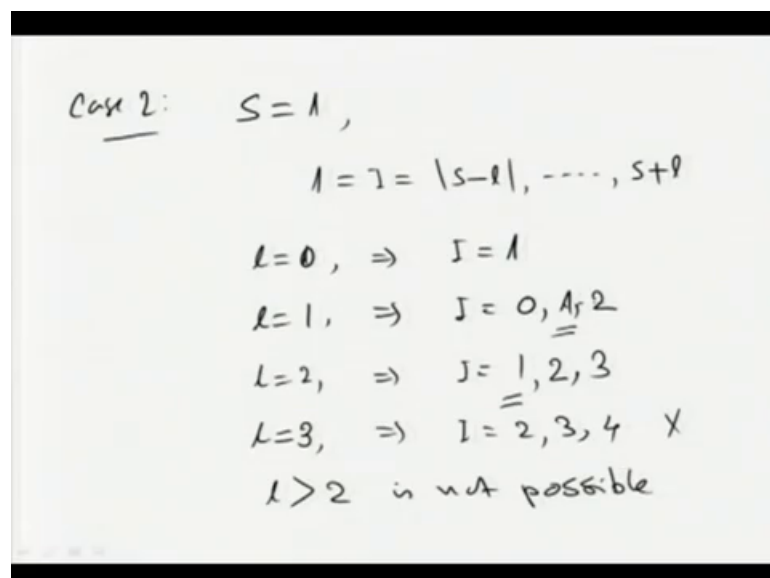 Case 2: S = 1,
1 = J = |s-l|, ----, s+l
l=0, => I = 1
l=1, => J = 0, 1, 2
l=2, => J = 1, 2, 3
l=3, => I = 2, 3, 4 X
l>2 is not possible